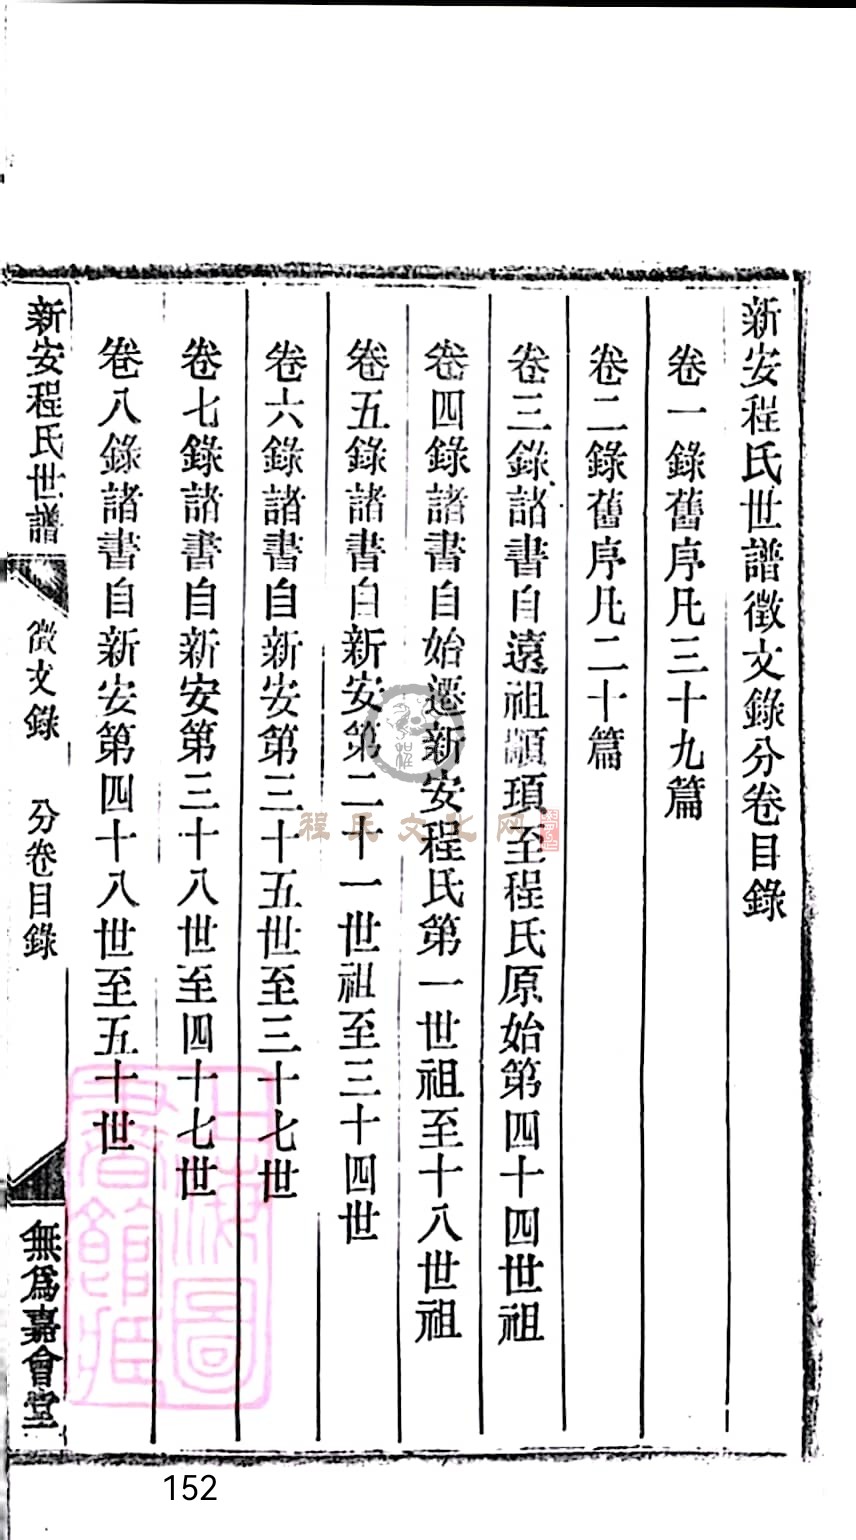 新安程氏世譜徵文錄分卷目錄
卷一錄舊序凡三十九篇
卷二錄舊序凡二十篇
卷三錄諸書自遠祖顓頊至程氏原始第四十四世祖
卷四錄諸書自始遷新安程氏第一世祖至十八世祖
卷五錄諸書自新安第二十一世祖至三十四世
卷六錄諸書自新安第三十五世至三十七世
卷七錄諸書自新安第三十八世至四十七世
卷八錄諸書自新安第四十八世至五十世
新安程氏世譜 徵文錄 分卷目錄 無爲嘉會堂
程氏文化网
上海圖書館藏
152